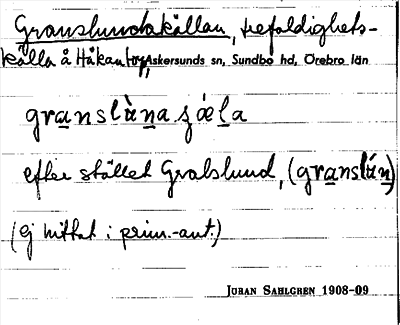 Granslundakällan, trefaldighets-
källa å Håkantorp, Askersunds sn, Sundbo hd, Örebro län
granslùna çǽla
efter stället Gralslund, (granslún)
(ej hittat i prim.-ant.)
JOHAN SAHLGREN 1908-09